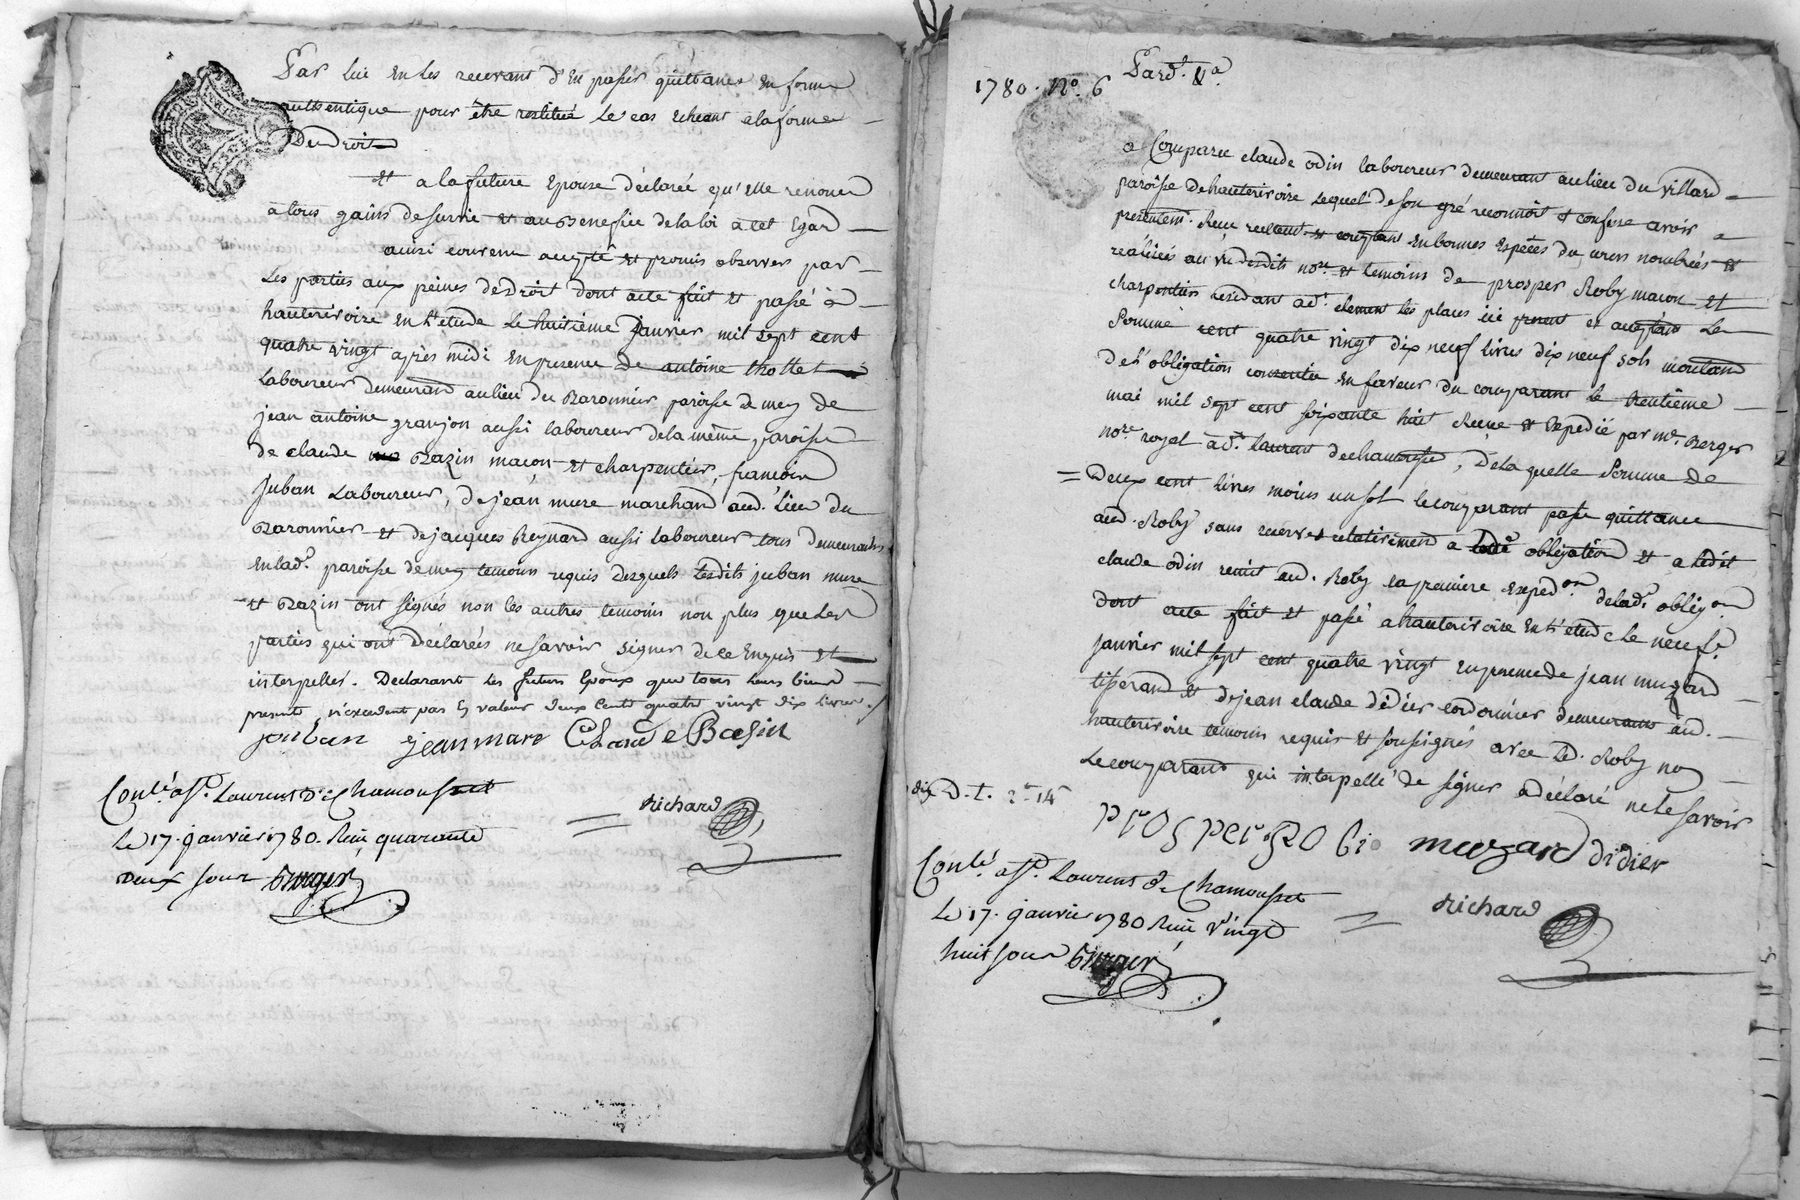 Par lui en les recevant d'en passer quittance en forme
authentique pour être restitué le cas echeant a la forme
Du droit
et a la future Epouse déclarée qu'elle renonce
a tous gains de survie et au Benefice de la loi a cet Egard
ainsi convenu accepté et promis observer par
Les parties aux peines de Droit dont acte fait et passé à
hauterivoire en l'etude le huitième janvier mil sept cent
quatre vingt après midi en presence de antoine thollet
Laboureur demeurand au lieu du Baronnier paroisse de mey de
jean antoine granjon aussi laboureur de la même paroisse
de claude Bazin macon et charpentier, francois
juban Laboureur, de jean mure marchand aud. lieu du
Baronnier et de jacques Reynard aussi laboureur tous demeurants
en lad. paroisse de mey temoins requis desquels lesdits juban mure
et Bazin ont signés non les autres temoins non plus que les
parties qui ont déclarées ne savoir signer de ce enquis et
interpellés. Declarant les futurs Epoux que tous leurs biens
presents n'excedent pas en valeur deux cents quatre vingt dix livres./.
jouban jean mare Claude Basin
Conlé. a St. Laurent De Chamousset
Le 17. janvier 1780. Reçu quarante
Deux sous Burger
Richard
1780. No. 6
Pard. Ve.
a Comparu claude odin laboureur demeurant au lieu du villard
paroisse de hauterivoire Lequel de son gré reconnoit et confesse avoir
presentemt. Reçu reellemt. et comptant en bonnes Espèces du cours nombrées et
réalisées au vu desdits nore. et temoins de prosper Roby macon et
charpentier residant a St. clement les places ici present et acceptant La
Somme cent quatre vingt dix neuf livres dix neuf sols montant
de l'obligation consentie en faveur du comparant le trentième
mai mil sept cent soixante huit Recue et Expediée par me. Berger
nore. royal a St. Laurent de chamousset, de la quelle Somme de
= Deux cent livres moins un sol le comparant passe quittance
aud. Roby sans reserves relativement a ladte. obligation et a ledit
claude odin remit aud. Roby la premiere Expedon. de lad. obligon.
Dont acte fait et passé a hauterivoire en l'etude le neufe.
janvier mil sept cent quatre vingt en presence de jean muzard
tisserand et de jean claude dédier cordonnier demeurants aud.
hauterivoire temoins requis et soussignés avec Led. Roby non
Le comparant qui interpellé de signer a déclaré ne le savoir
D. t. 2# 14s
prosper Robi muzard didier
Conlé. a St. Laurent De Chamousset
Le 17. janvier 1780 Reçu vingt
huit sous Burger
Richard